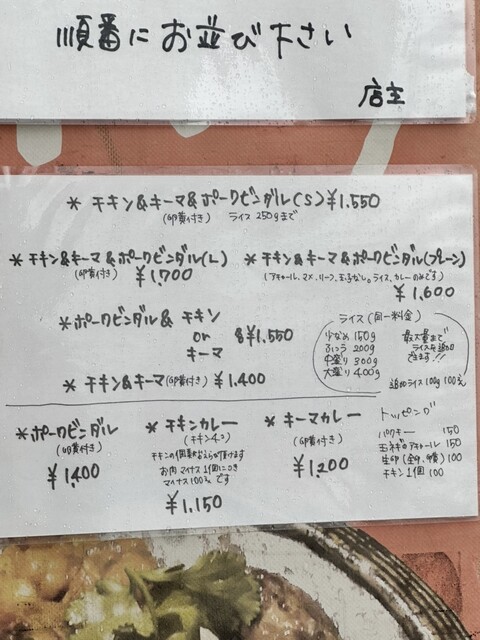 順番にお並び下さい
店主
* チキン&キーマ&ポークビンダル(S) ¥1.550
(卵黄付き) ライス250gまで
* チキン&キーマ&ポークビンダル(L)
(卵黄付き) ¥1,700
* チキン&キーマ&ポークビンダル(プレーン)
(アチャール、マメ、リーフ、玉ネギなし。ライス、カレーのみです)
¥1,600
* ポークビンダル& チキン
or
キーマ
¥1.550
ライス(同一料金)
少なめ 150g
ふつう 200g
中盛り 300g
大盛り 400g
最大量まで
ライスを追加
できます!!
追加ライス 100g 100えん
* チキン&キーマ(卵黄付き) ¥1.400
* ポークビンダル
(卵黄付き)
¥1400
* チキンカレー
(チキン4コ)
チキンの個数おえらび頂けます
お肉マイナス1個につき
マイナス100えんです
¥1.150
* キーマカレー
(卵黄付き)
¥1,200
トッピング
パクチー 150
玉ネギのアチャール 150
生卵(全卵、卵黄) 100
チキン1個 100